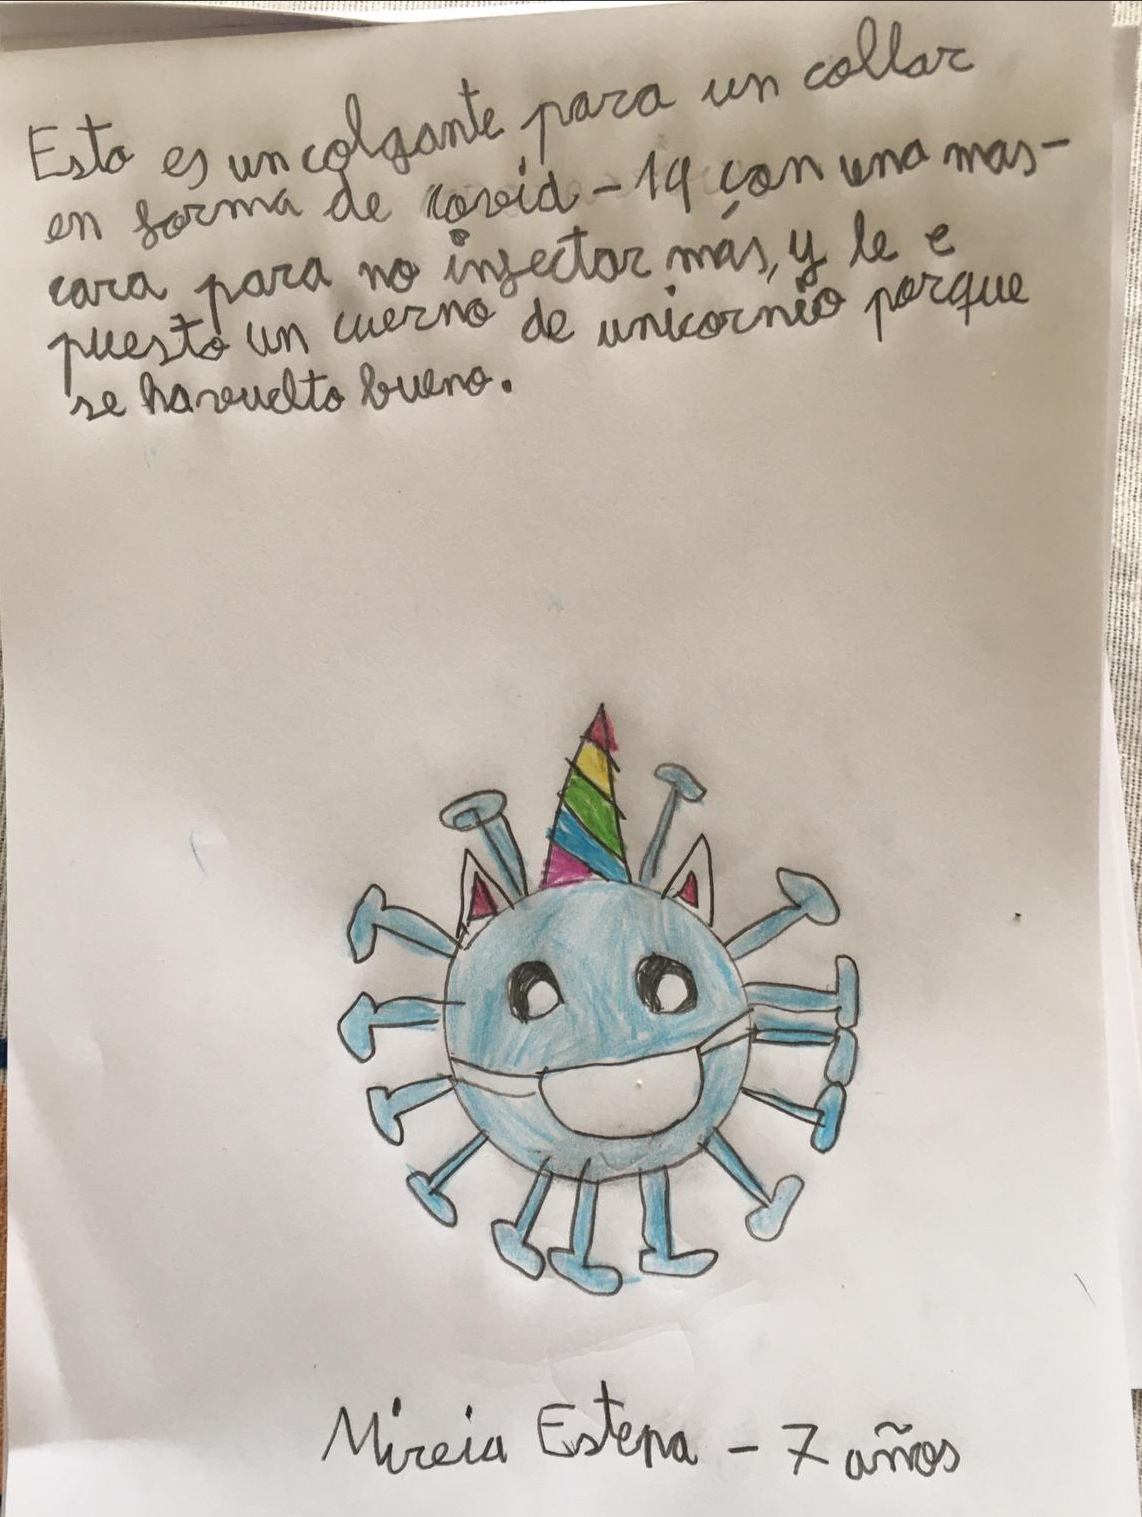 Esto es un colgante para un collar
en forma de covid-19 con una mas-
cara para no infectar más, y le e
puesto un cuerno de unicornio porque
se ha vuelto bueno.
Mireia Estepa - 7 años